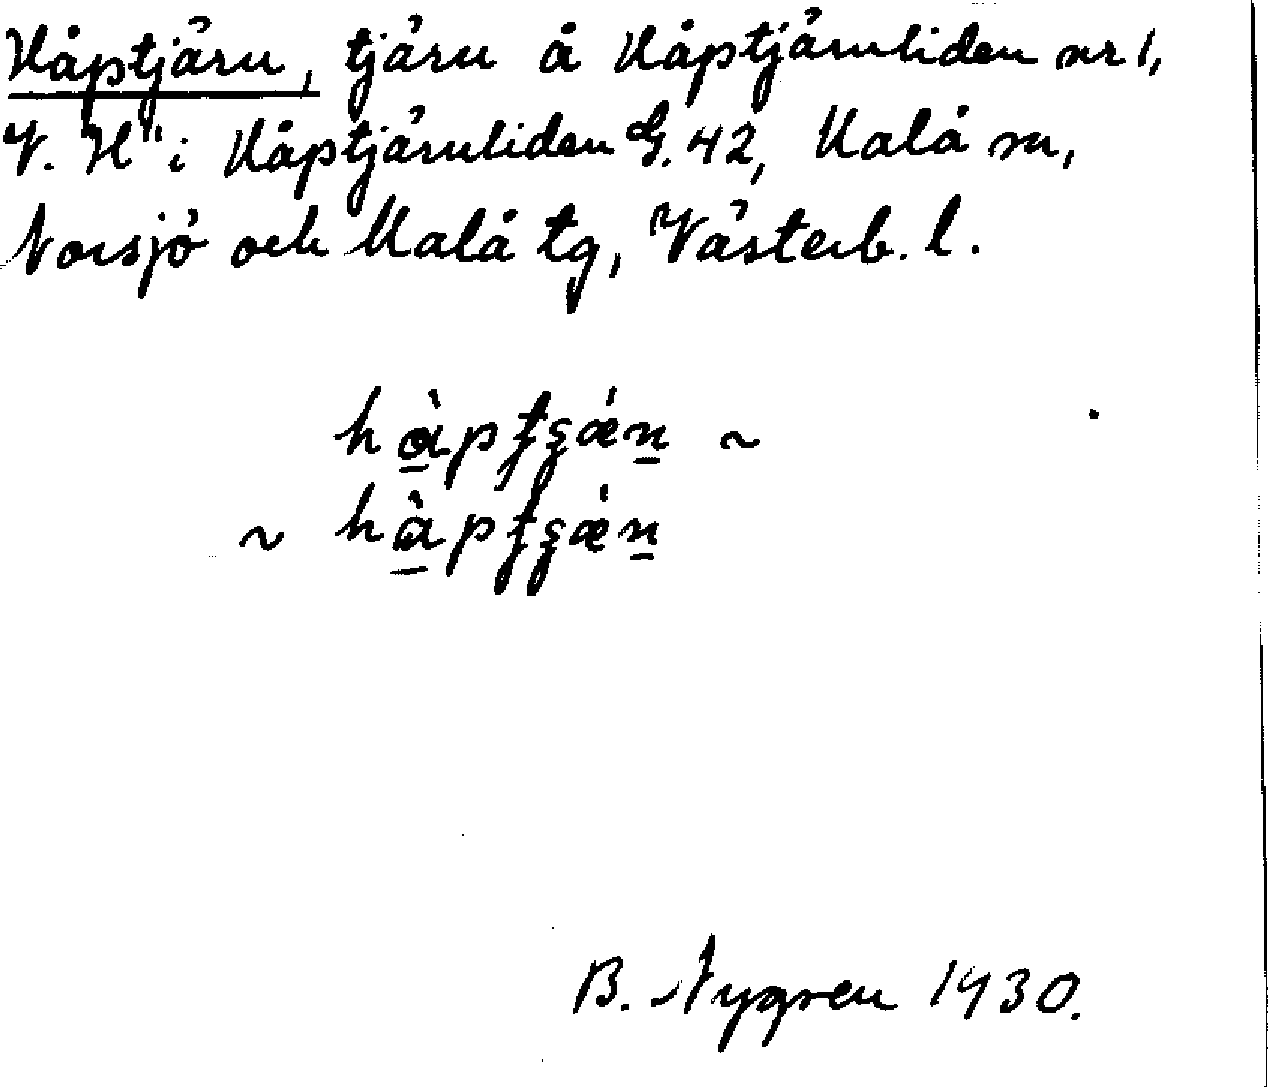 Håptjärn, tjärn å Håptjärnliden nr 1,
V. "H" i Håptjärnliden G. 42, Malå sn,
Norsjö och Malå tg, Västerb. l.
hàpʈʂǽn ~
~ hàpʈʂǽn
B. Nygren 1930.